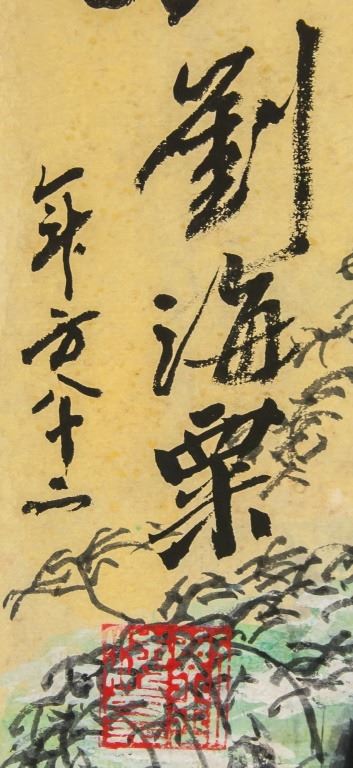 劉海粟
年方八十二